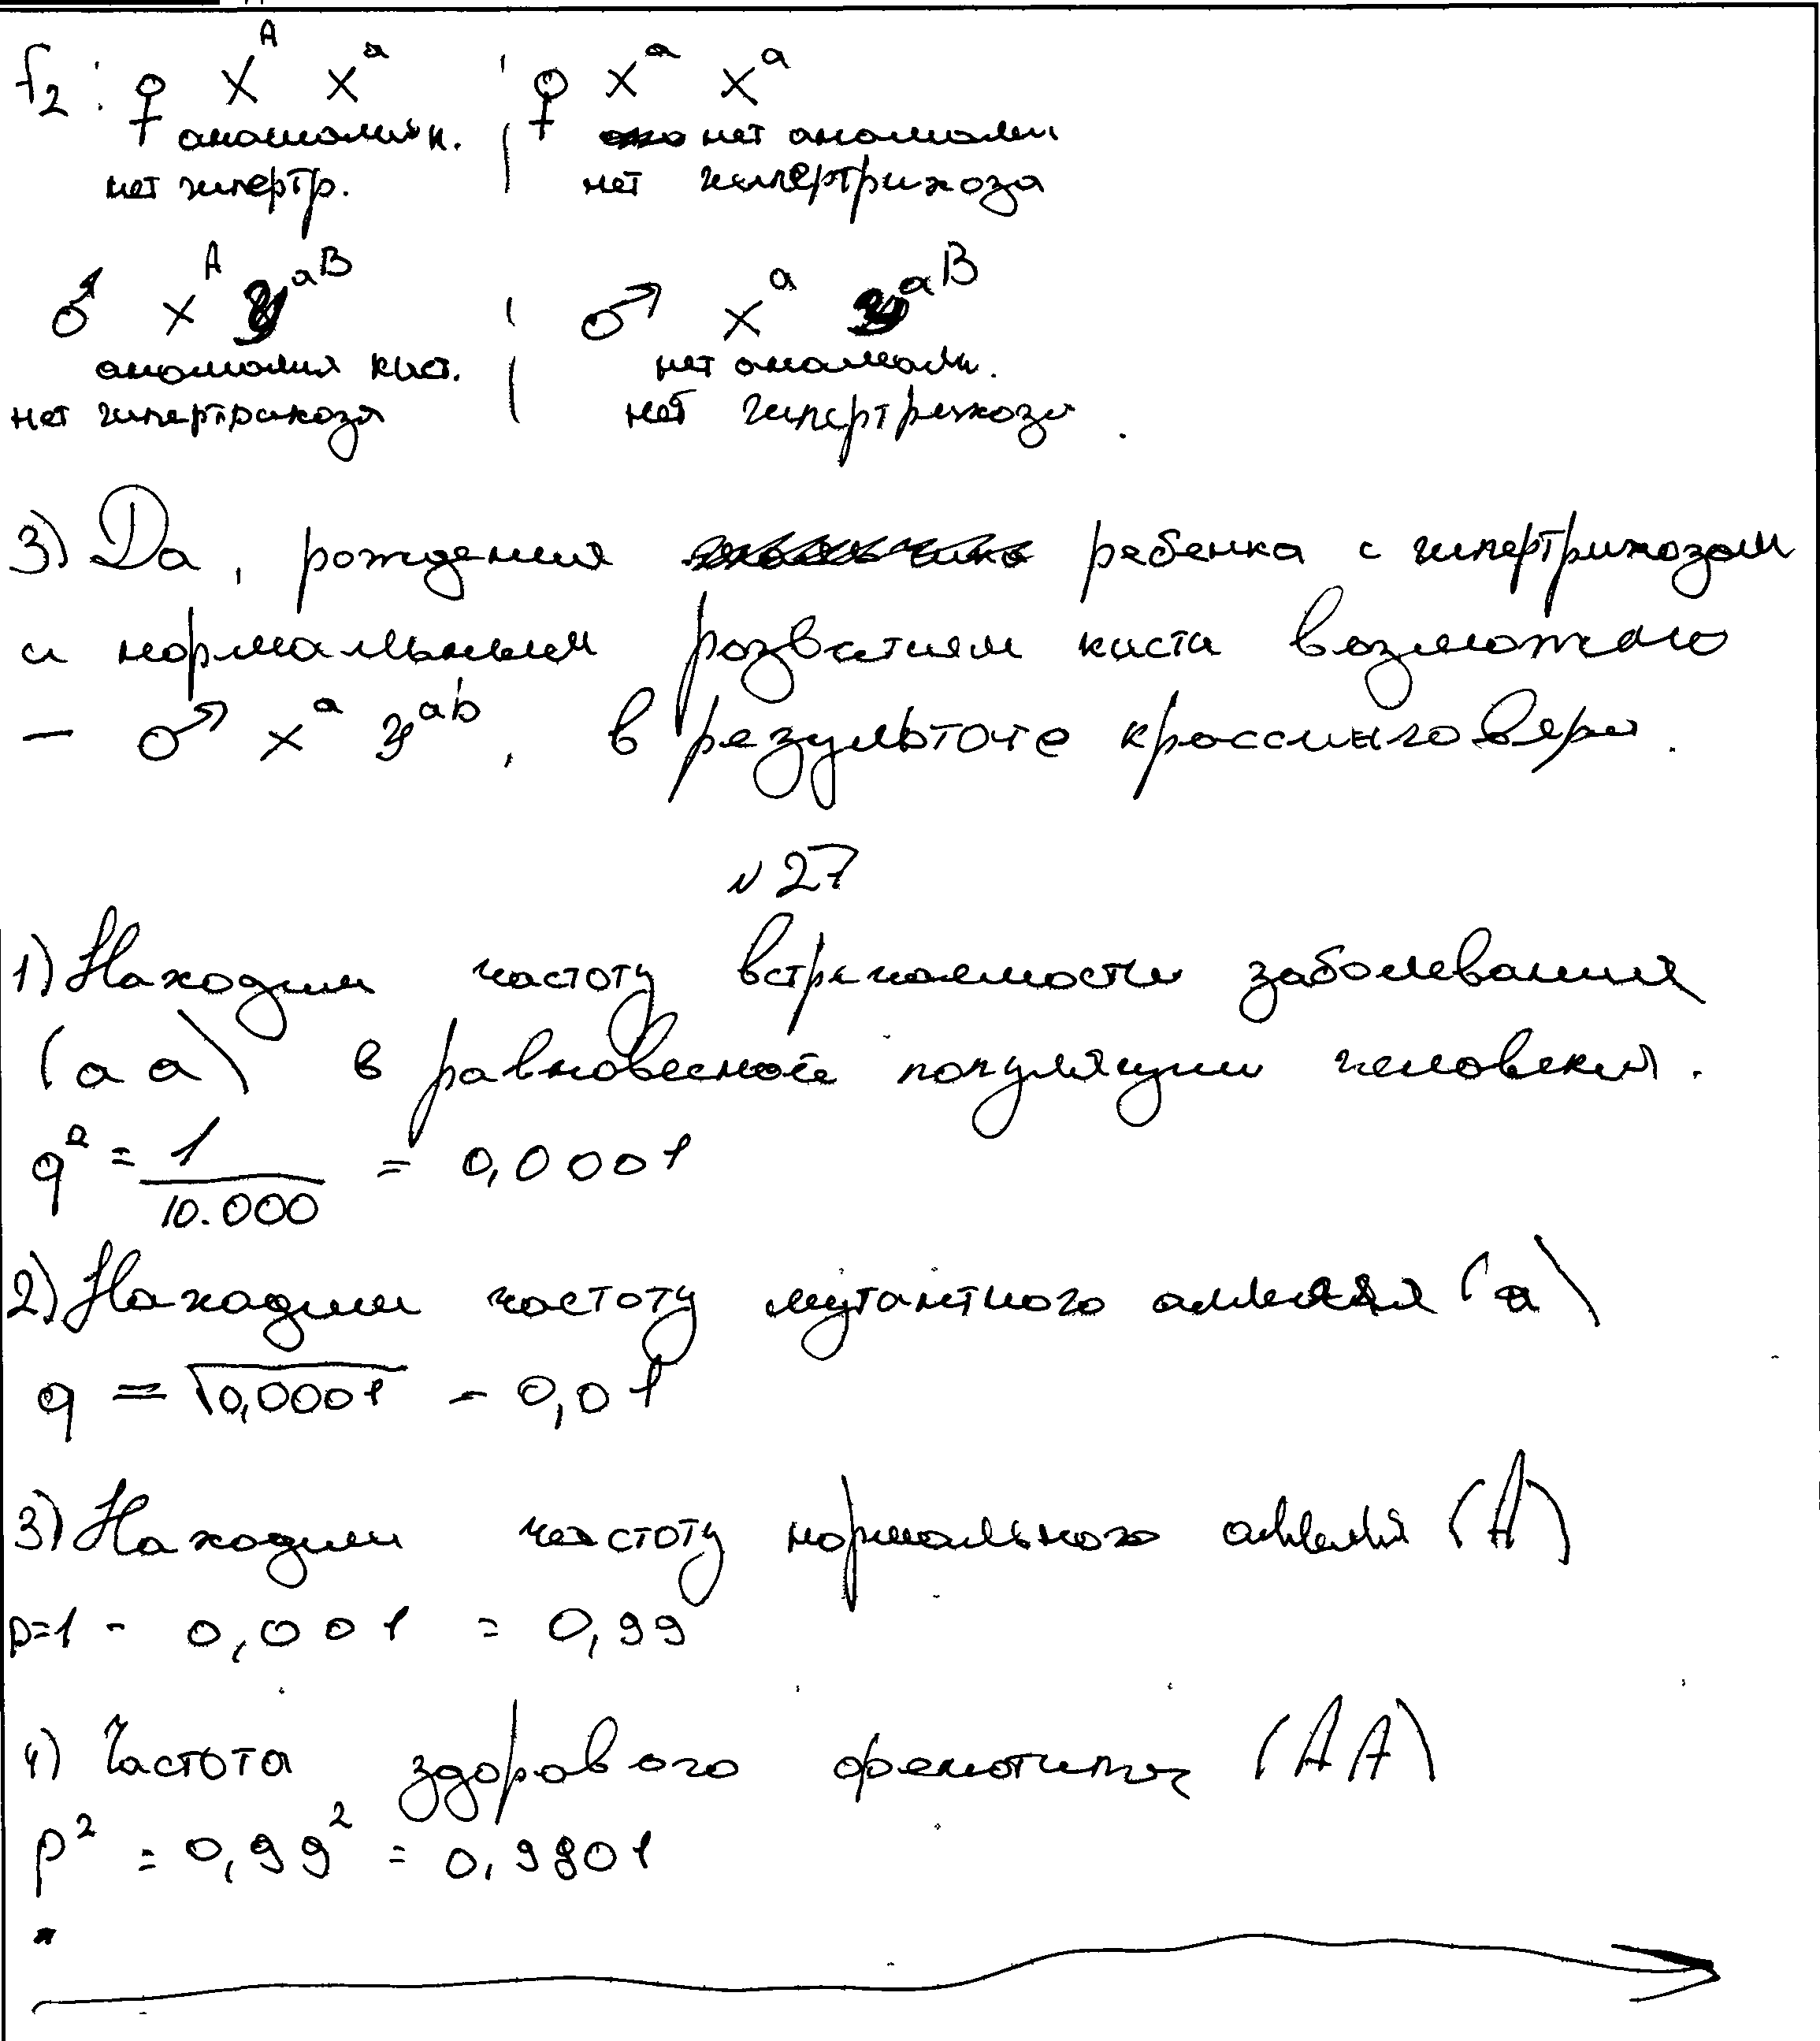 F₂: ♀ Xᴬ Xᵃ ¦ ♀ Xᵃ Xᵃ
аномалия к. ¦ нет аномалии
нет гипертр. | нет гипертрихоза
♂ Xᴬ Yᵃᴮ ¦ ♂ Xᵃ Yᵃᴮ
аномалия кист. ¦ нет аномали.
нет гипертрихоза | нет гипертрихоза.
3) Да, рождения ребенка с гипертрихозом
и нормальным розватием киста возможно
– ♂ Xᵃ Yᵃᵇ, в результате кроссинговера.
№27
1) Находим частоту встречаемости заболевания
(aa) в равновесной популяции человеки.
q² = 1/10.000 = 0,0001
2) Находим частоту мутантного аллеля (a)
q = √0,0001 – 0,01
3) Находим частоту нормального аллеля (A)
p=1 - 0,001 = 0,99
4) Частота здорового фенотипа (AA)
p² = 0,99² = 0,9801